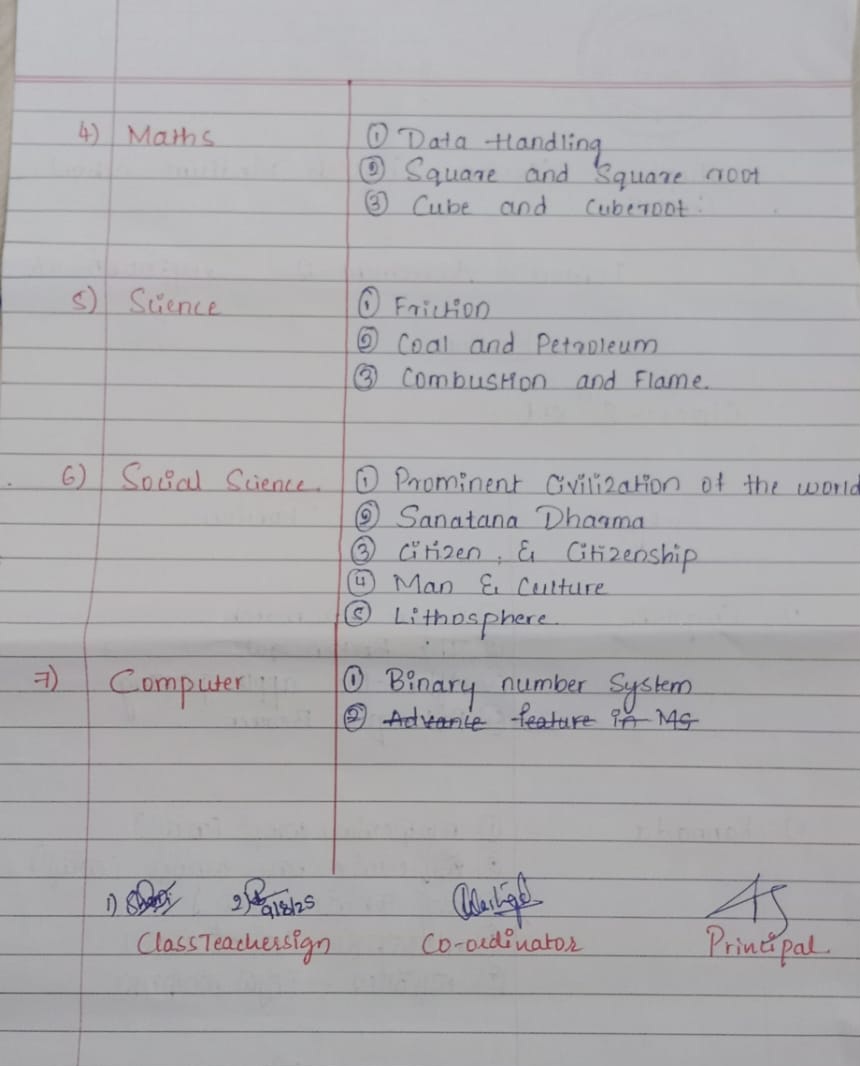 4) Maths ① Data Handling
② Square and Square root
③ Cube and Cuberoot.
5) Science ① Friction
② Coal and Petroleum
③ Combustion and Flame.
6) Social Science. ① Prominent Civilization of the world
② Sanatana Dharma
③ Citizen & Citizenship
④ Man & Culture
⑤ Lithosphere.
7) Computer ① Binary number System
② Advance feature in MS
1) 2) 9/8/25
Class Teachersign Co-ordinator Principal